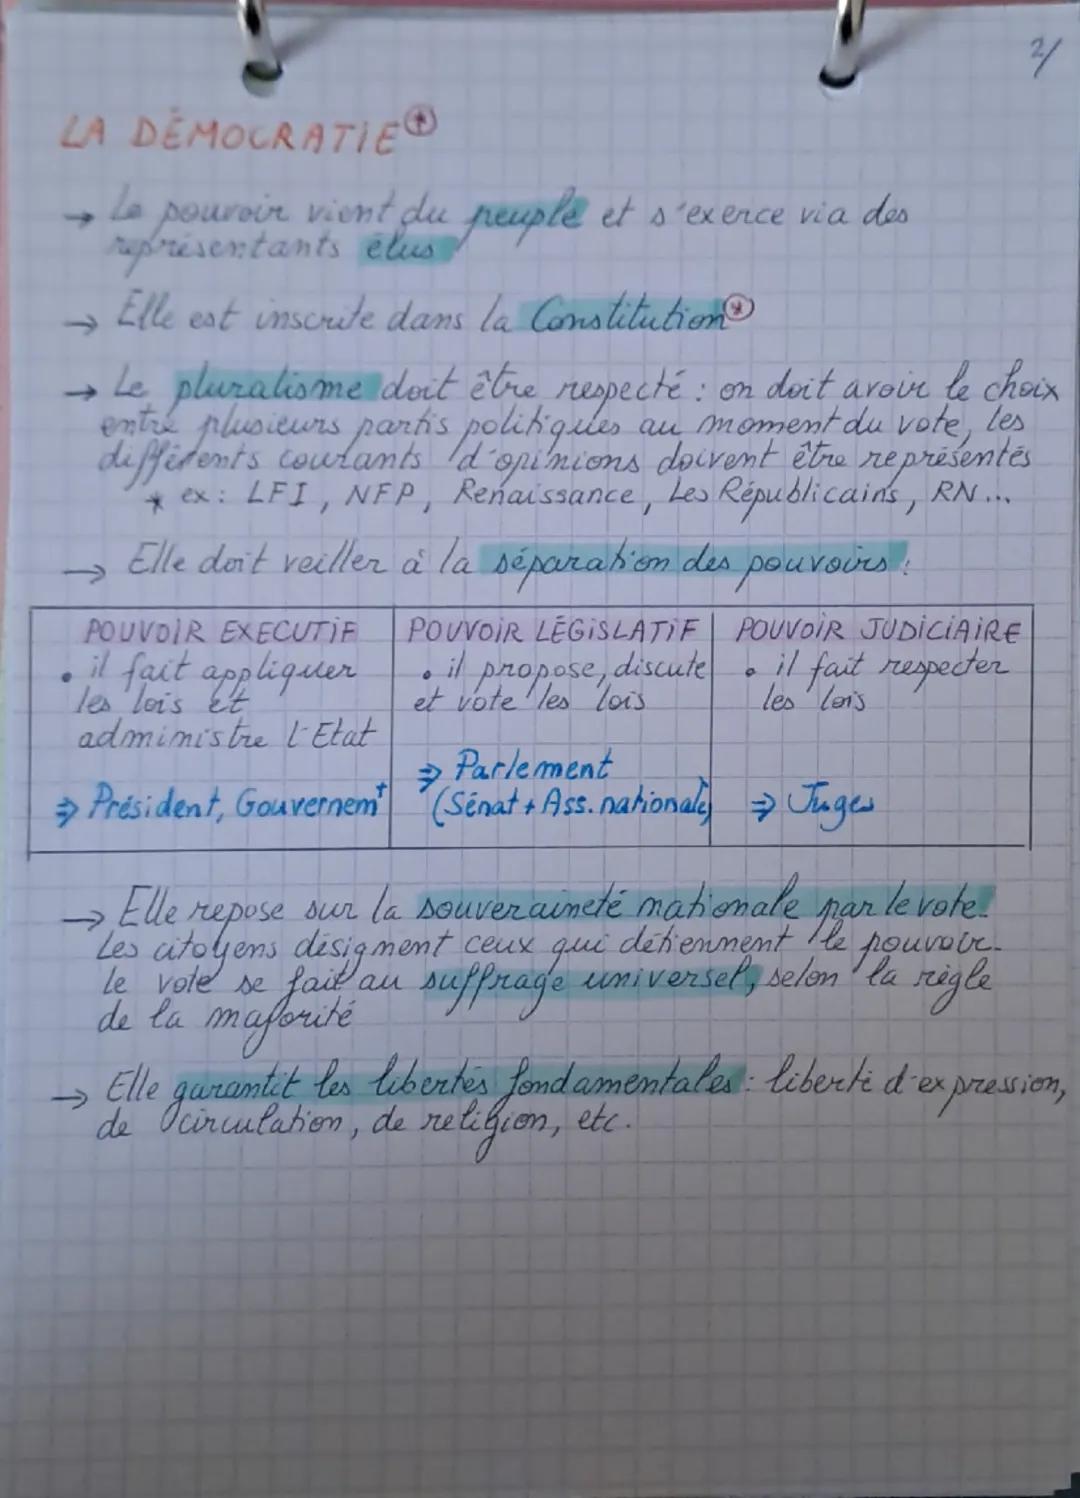 2/
LA DÉMOCRATIE(*)
→ Le pouvoir vient du peuple et s'exerce via des
représentants élus
→ Elle est inscrite dans la Constitution(*)
→ Le pluralisme doit être respecté : on doit avoir le choix
entre plusieurs partis politiques au moment du vote, les
différents courants d'opinions doivent être représentés
* ex : LFI, NFP, Renaissance, Les Républicains, RN...
→ Elle doit veiller à la séparation des pouvoirs :
POUVOIR EXECUTIF
• il fait appliquer
les lois et
administre l'Etat
⇒ Président, Gouvernemt
POUVOIR LÉGISLATIF
• il propose, discute
et vote les lois
⇒ Parlement
(Sénat + Ass. nationale)
POUVOIR JUDICIAIRE
• il fait respecter
les lois
⇒ Juges
→ Elle repose sur la souveraineté nationale par le vote.
Les citoyens désignent ceux qui détiennent le pouvoir.
le vote se fait au suffrage universel, selon la règle
de la majorité
→ Elle garantit les libertés fondamentales : liberté d'expression,
de circulation, de religion, etc.